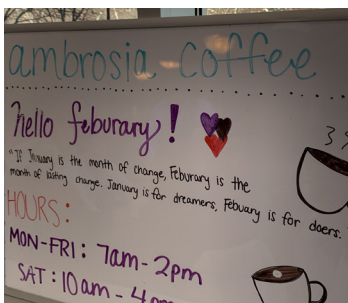 ambrosia coffee
hello feburary!
"If January is the month of change, Feburary is the
month of lasting change. January is for dreamers, Febuary is for doers.
HOURS:
MON-FRI: 7am-2pm
SAT: 10am-4pm